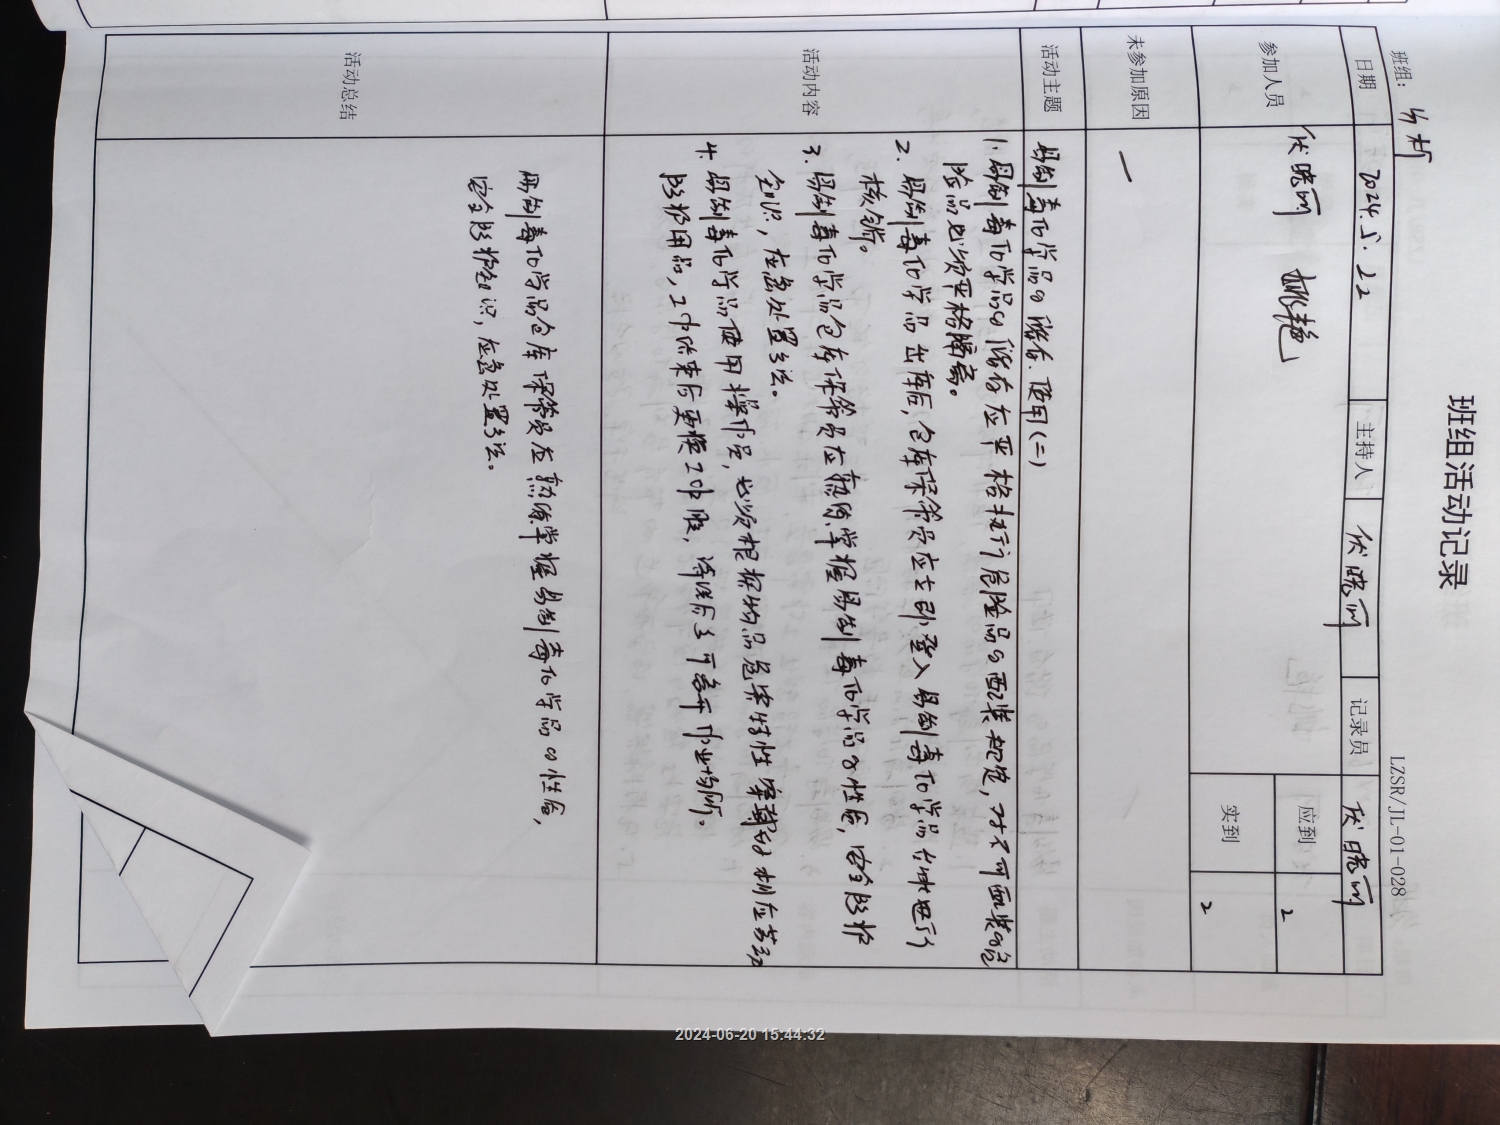 班组活动记录
LZSR/JL-01-028
班组: 分析
日期 2024.5.22 主持人 伏晓丽 记录员 伏晓丽
参加人员 伏晓丽 艳 应到 2
实到 2
未参加原因 —
活动主题 易制毒化学品的储存、使用(二)
活动内容
1. 易制毒化学品的储存应严格执行危险品的配装规定,对不可配装的危
险品必须严格隔离。
2. 易制毒化学品出库后,仓库保管员应立即登入易制毒化学品台账进行
核销。
3. 易制毒化学品仓库保管员应熟练掌握易制毒化学品的性质,安全防护
知识,应急处置方法。
4. 易制毒化学品使用操作员,必须根据物品危害特性穿戴好相应劳动
防护用品,工作结束后更换工作服,清洗后方可离开作业场所。
活动总结
易制毒化学品仓库保管员应熟练掌握易制毒化学品的性质,
安全防护知识,应急处置方法。
2024-06-20 15:44:32